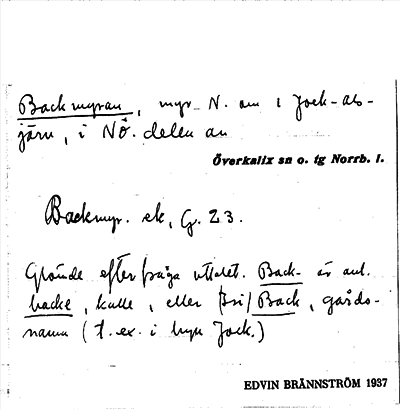 Backmyran, myr N. om i Jock-als-
järv, i NÖ. delen av
Överkalix sn o. tg Norrb. l.
Backmyr. ek, G. 23.
Grände efter fråga uttalet. Back- är ant.
backe, kulle, eller Bri/Back, gårds-
namn (t. ex. i byn Jock.)
EDVIN BRÄNNSTRÖM 1937